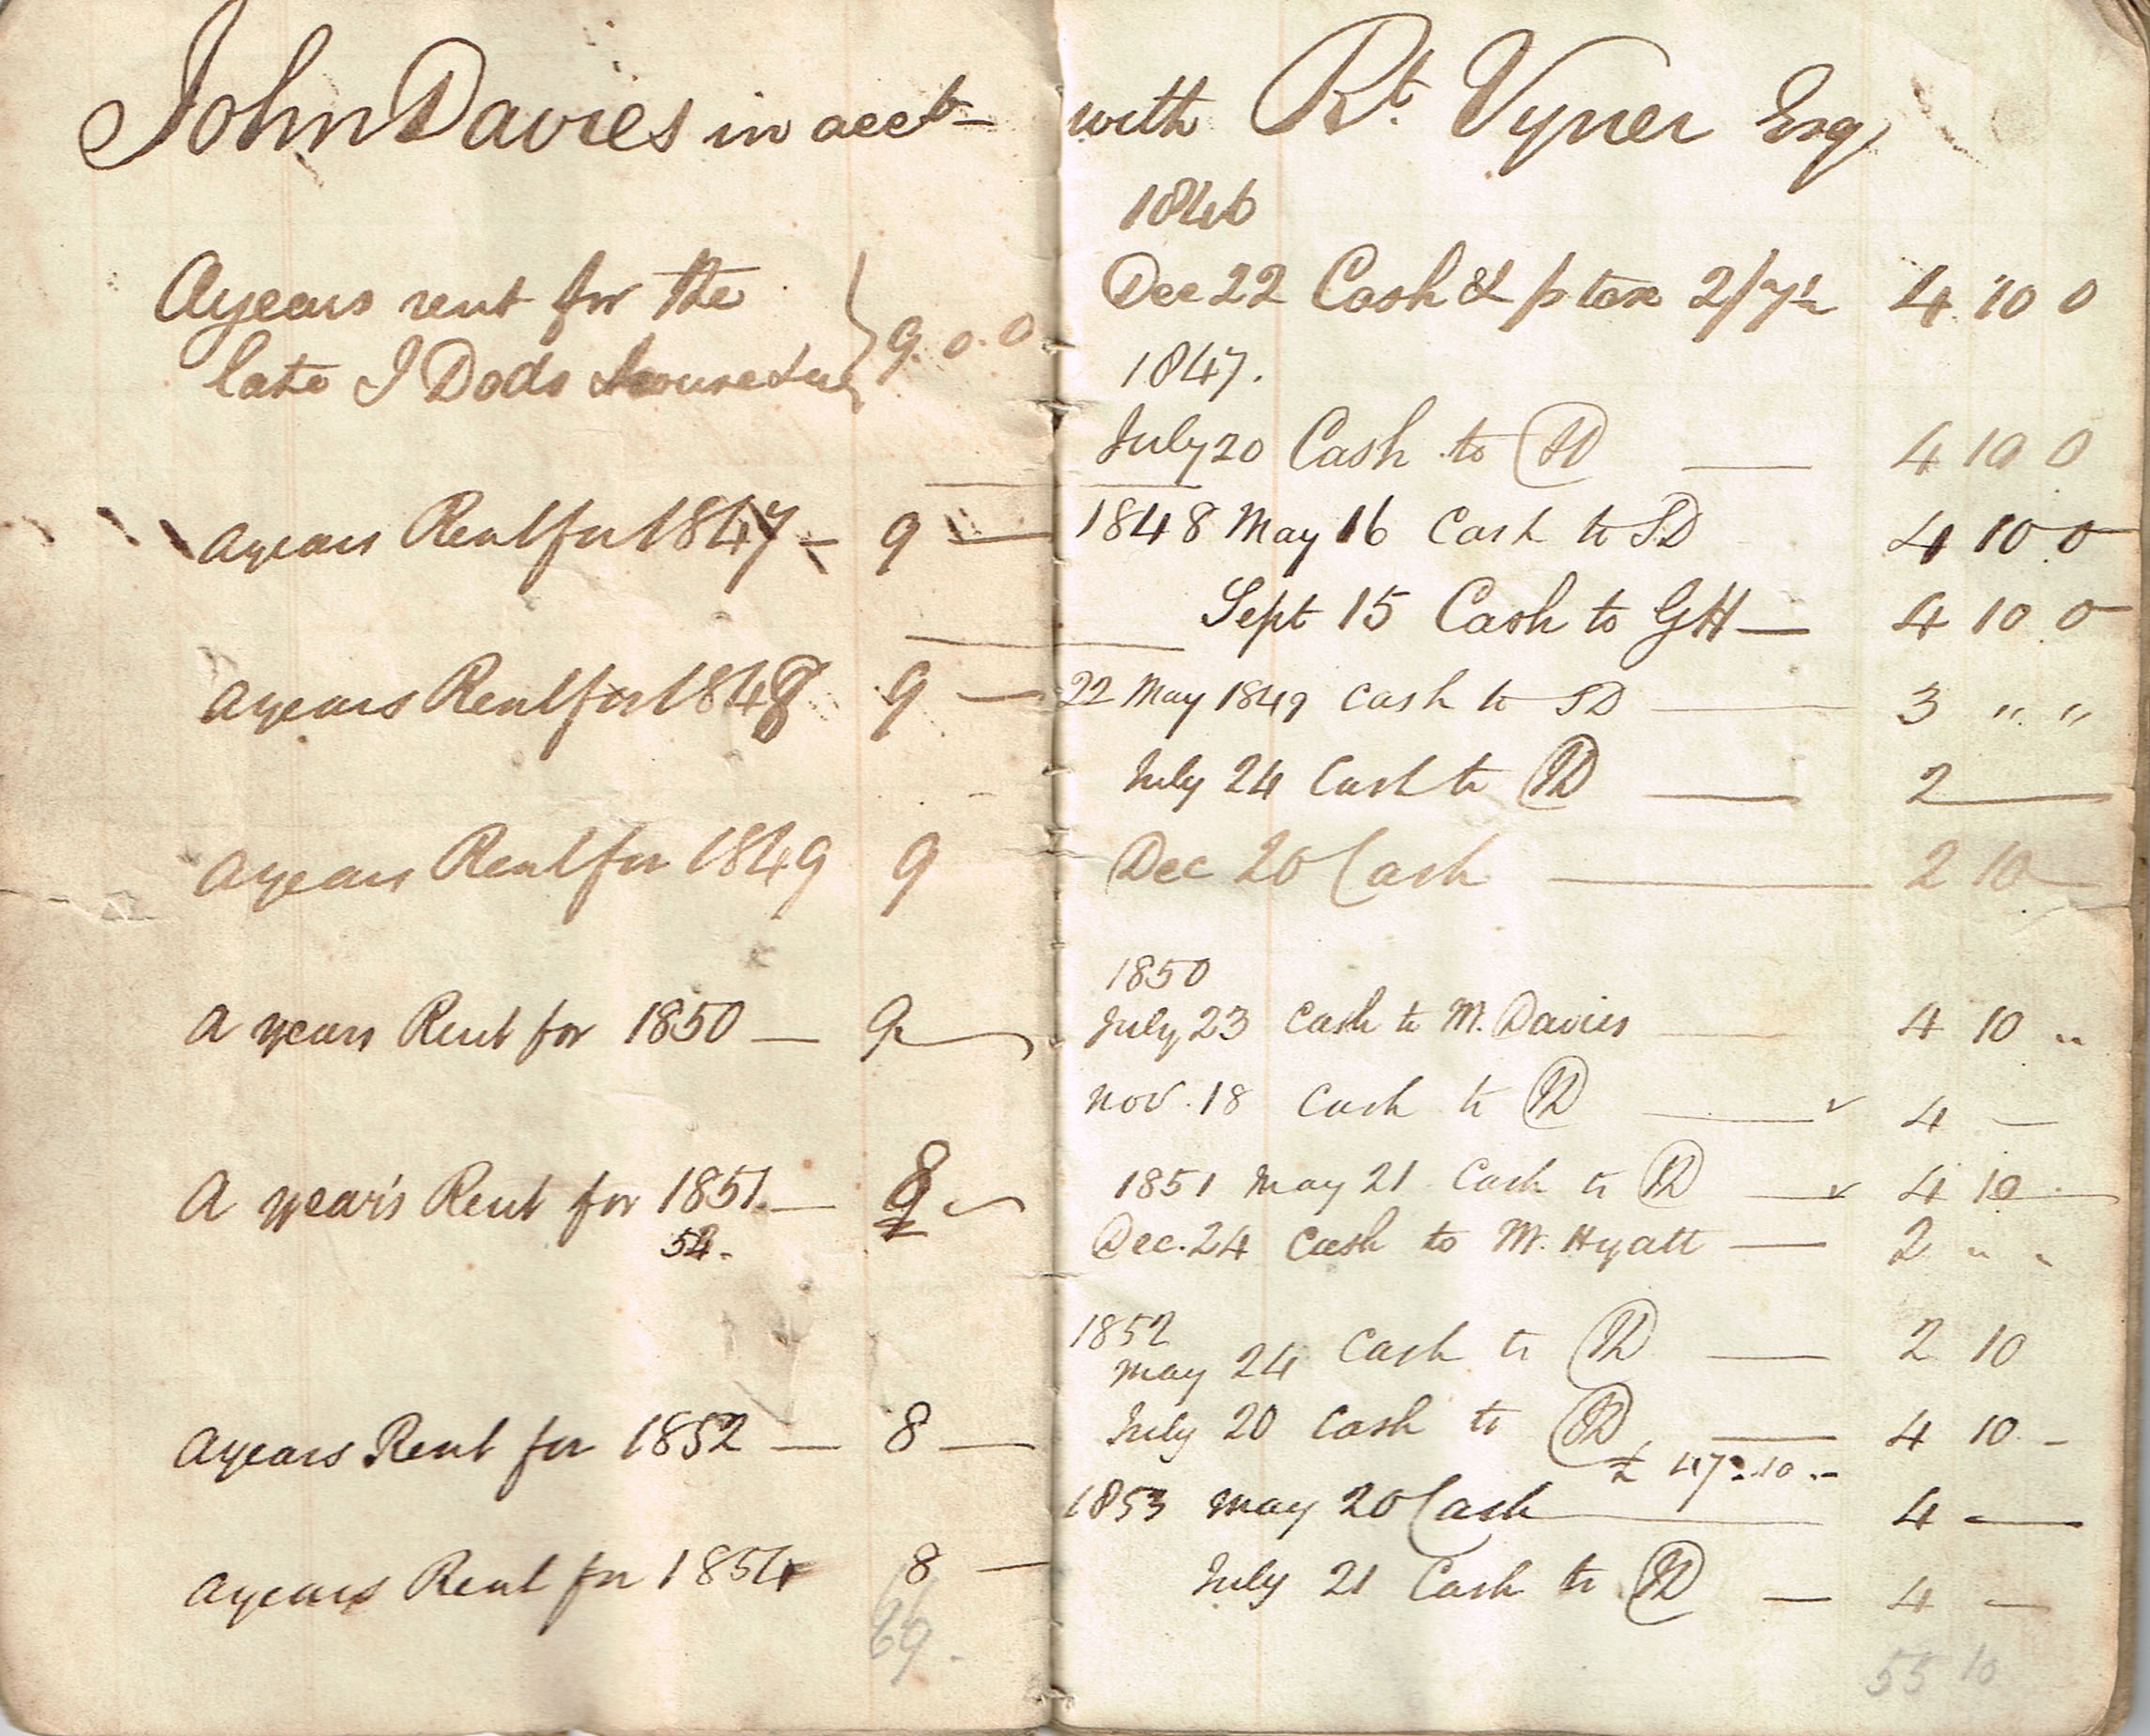 John Davies in acct
A years rent for the
late J Dods house &c } 9. 0. 0
a years Rent for 1847 — 9 —
a years Rent for 1848 9 —
a years Rent for 1849 9
A years Rent for 1850 — 9
A year's Rent for 1851. — 8
52.
a years Rent for 1852 — 8 —
a years Rent for 1854 8 —
69.
with Rt. Vyner Esq
1846
Dec 22 Cash & p tax 2/7½ 4 10 0
1847.
July 20 Cash to — 4 10 0
1848 May 16 Cash to SD 4 10 0
Sept 15 Cash to GH — 4 10 0
22 May 1849 Cash to SD — 3 " "
July 24 Cash to — 2 —
Dec 20 Cash — 2 10 —
1850
July 23 Cash to M. Davies — 4 10 "
Nov. 18 Cash to — 4 —
1851 May 21 Cash to — 4 10 —
Dec. 24 Cash to M. Hyatt — 2 " "
1852
May 24 Cash to — 2 10
July 20 Cash to — 4 10 -
£ 47 . 10 . -
1853 May 20 Cash — 4 —
July 21 Cash to — 4 —
55 10